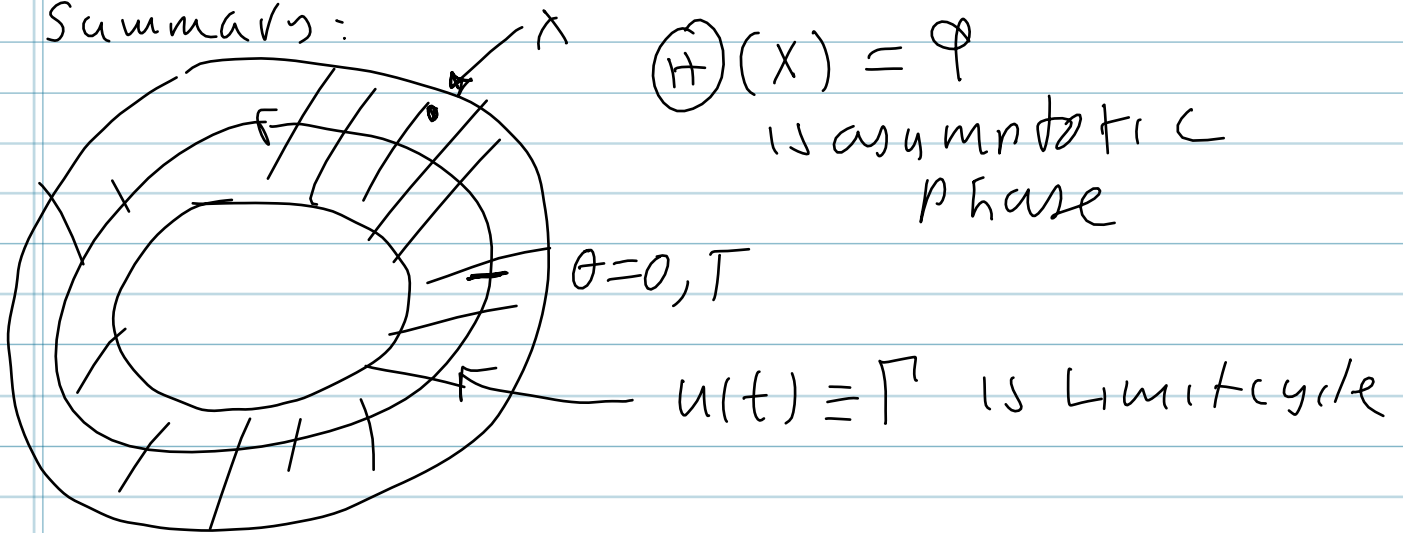 Summary:
X
Ⓗ(X) = φ
is asymptotic
phase
θ=0,T
u(t) ≡ Γ is Limitcycle